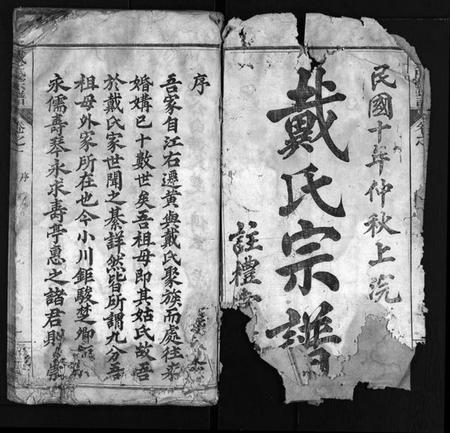 民國十年仲秋上浣
戴氏宗譜
註禮
序
吾家自江右遷黄與戴氏聚族而處往来
婚媾已十數世矣吾祖母即其姑氏故吾
於戴氏家世聞之綦詳然皆所謂九分吾
祖母外家所在也今小川鉅駿楚
永儒壽琴永求壽亭惠之諸君則